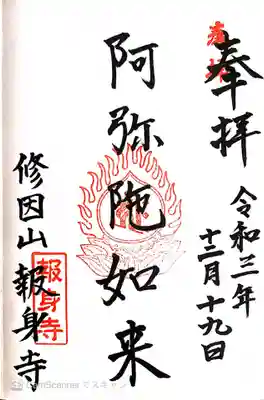 奉拝
令和三年
十二月十九日
阿弥陀如来
修因山報身寺
報身寺
CamScanner でスキャン